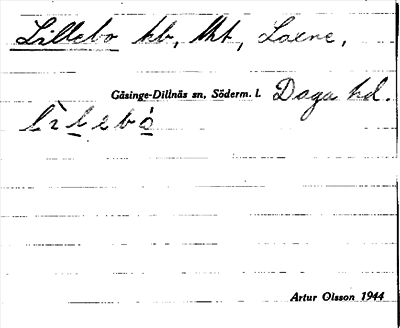 Lillebo hb, tkt, Laxne,
Gåsinge-Dillnäs sn, Söderm. l. Daga hd.
Artur Olsson 1944